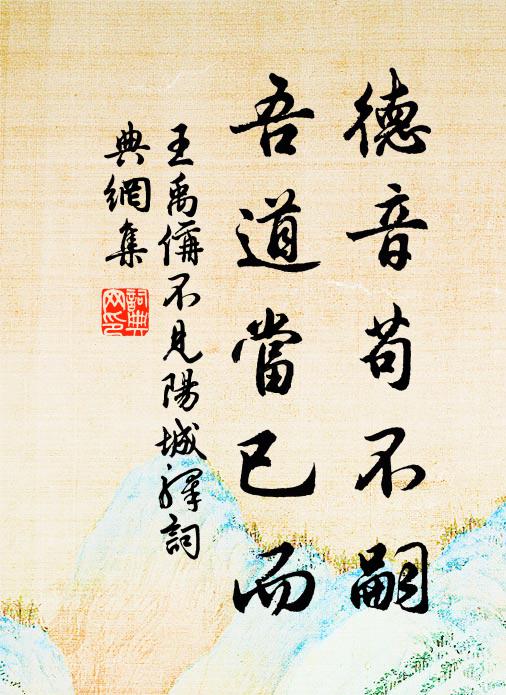 德音苟不嗣
吾道當已而
王禹偁不見陽城驛詞
典網集
詞典網印